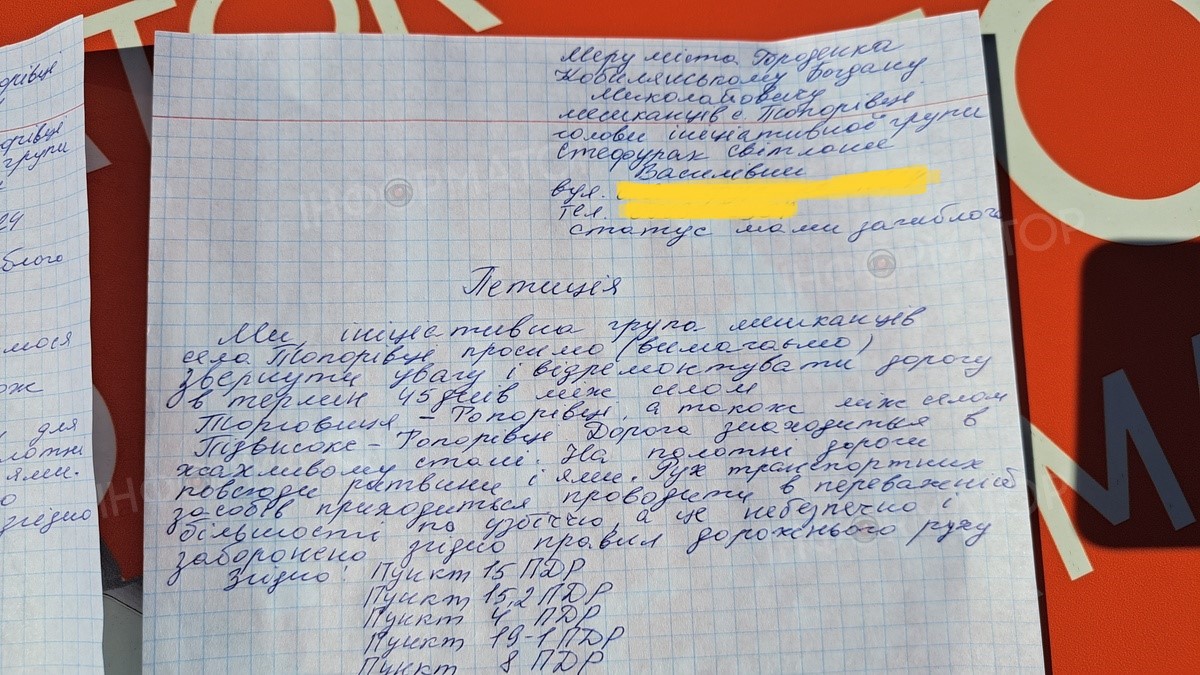 Меру міста Городенка
Кобилянському Богдану
Миколайовичу
мешканців с. Топорівці
голови ініціативної групи
Стефурак Світлани
Василівни
вул.
тел.
статус мами загиблого
Петиція
Ми, ініціативна група мешканців
села Топорівці просимо (вимагаємо)
звернути увагу і відремонтувати дорогу
в термін 45 днів між селом
Торговиця - Топорівці, а також між селом
Підвисоке - Топорівці. Дорога знаходиться в
жахливому стані. На полотні дороги
повсюди ритвини і ями. Рух транспортних
засобів приходиться проводити в переважній
більшості по узбіччю, а це небезпечно і
заборонено згідно правил дорожнього руху
Згідно: Пункт 15 ПДР
Пункт 15,2 ПДР
Пункт 4 ПДР
Пункт 19-1 ПДР
Пункт 8 ПДР
орівці
орівці
групи
24
блого
мося
ож
для
лотні
ями.
о
згідно
ІНФОРМАТОР